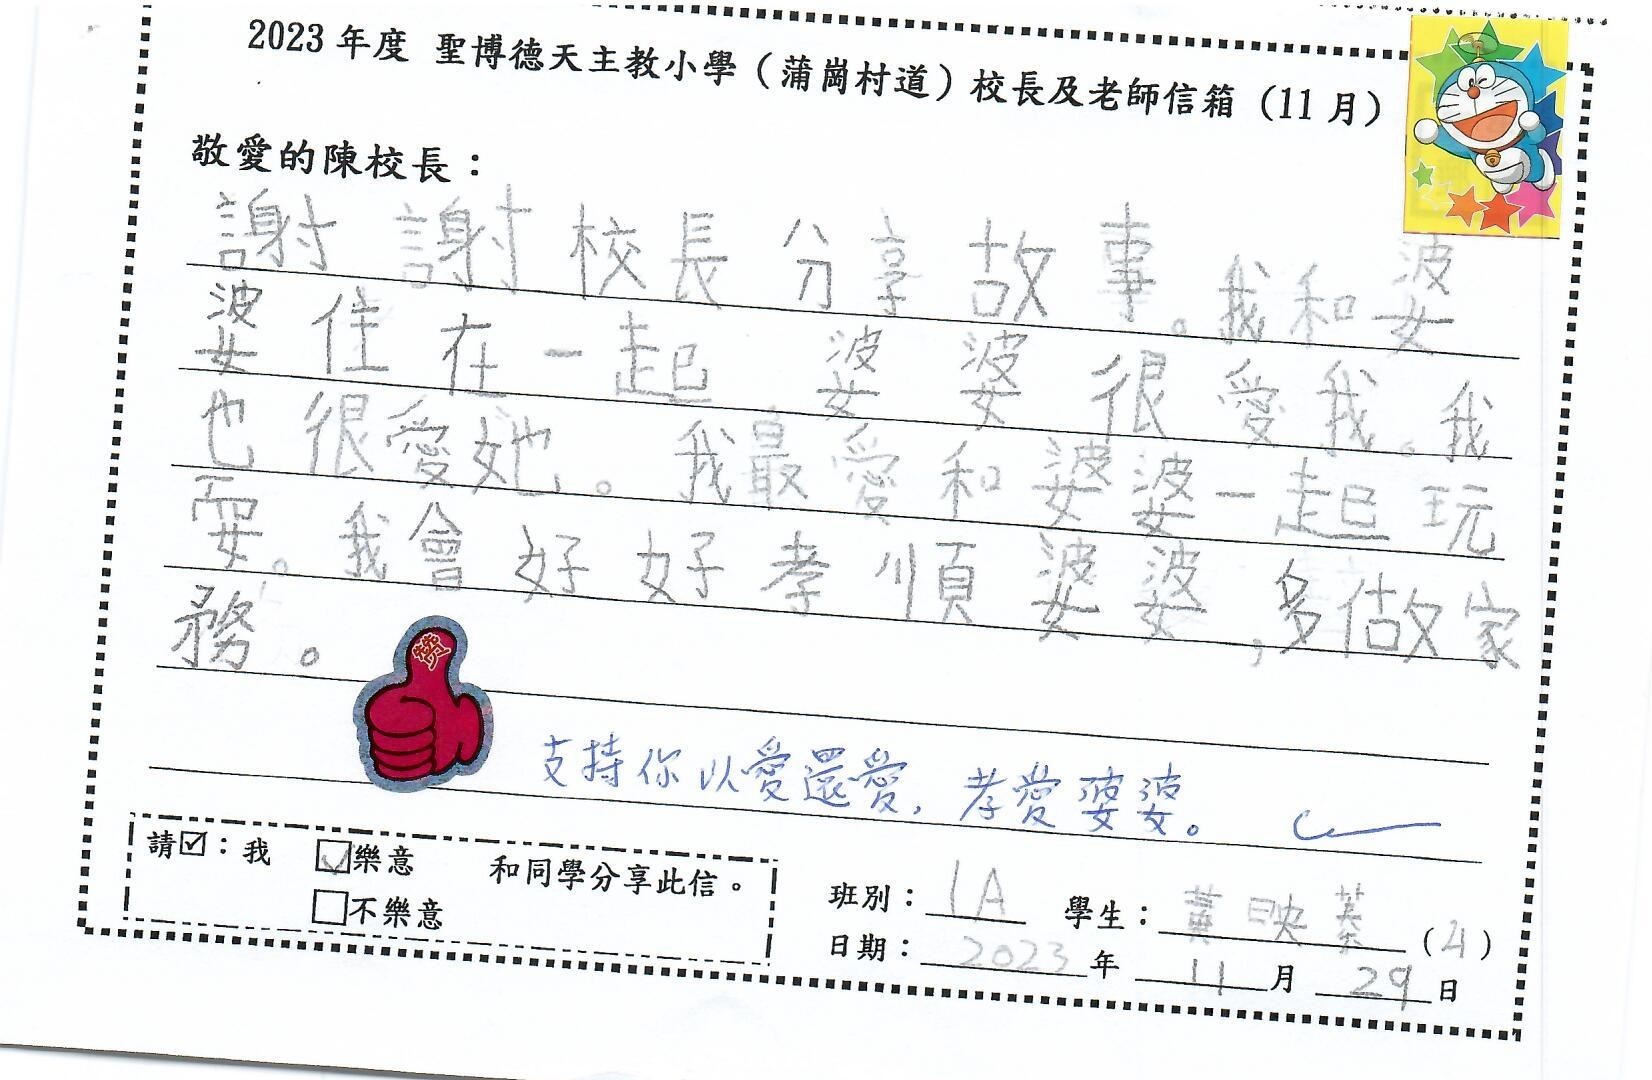 2023 年度 聖博德天主教小學（蒲崗村道）校長及老師信箱（11 月）
敬愛的陳校長：
謝謝校長分享故事。我和婆
婆住在一起 婆婆很愛我。我
也很愛她。我最愛和婆婆一起玩
耍。我會好好孝順婆婆,多做家
務。
支持你以愛還愛，孝愛婆婆。
請☑：我 ☑樂意 和同學分享此信。
□不樂意
班別：1A 學生：黃映蓁（4）
日期：2023年11月29日